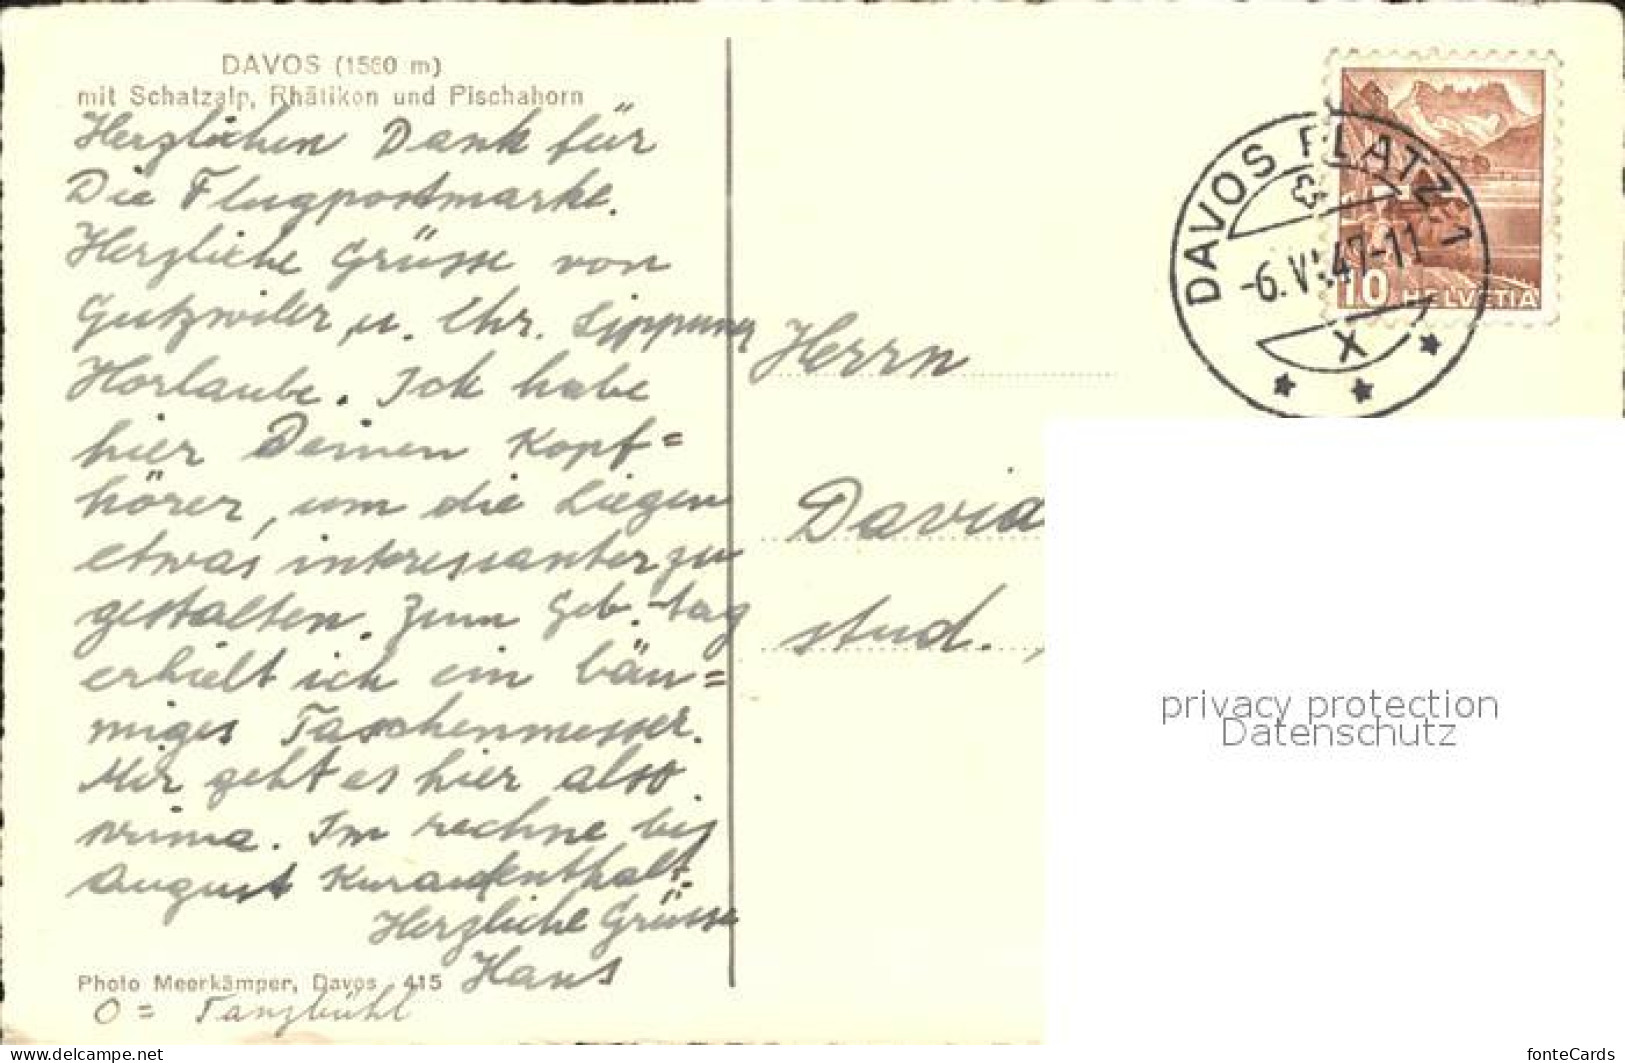 DAVOS (1560 m)
mit Schatzalp, Rhätikon und Pischahorn
Herzlichen Dank für
Die Flugpostmarke.
Herzliche Grüsse von
Gutzwiler, u. Chr. Lippuner
Horlaube. Ich habe
hier Deinen Kopf=
hörer, um die Liegen
etwas interessanter zu
gestalten. Zum Geb.-tag
erhielt ich ein bäu=
miges Taschenmesser.
Mir geht es hier also
prima. Im rechne bis
August Kuraufenthalt.
Herzliche Grüsse
Hans
Photo Meerkämper, Davos 415
O = Tanzbühl
HELVETIA
10
DAVOS PLATZ 1
-6. VI.47-11
X
Herrn
David
stud.,
privacy protection
Datenschutz
www.delcampe.net
fonteCards